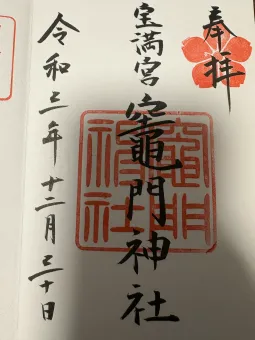 奉拝
宝満宮竈門神社
竈門神社
令和三年十二月三十日